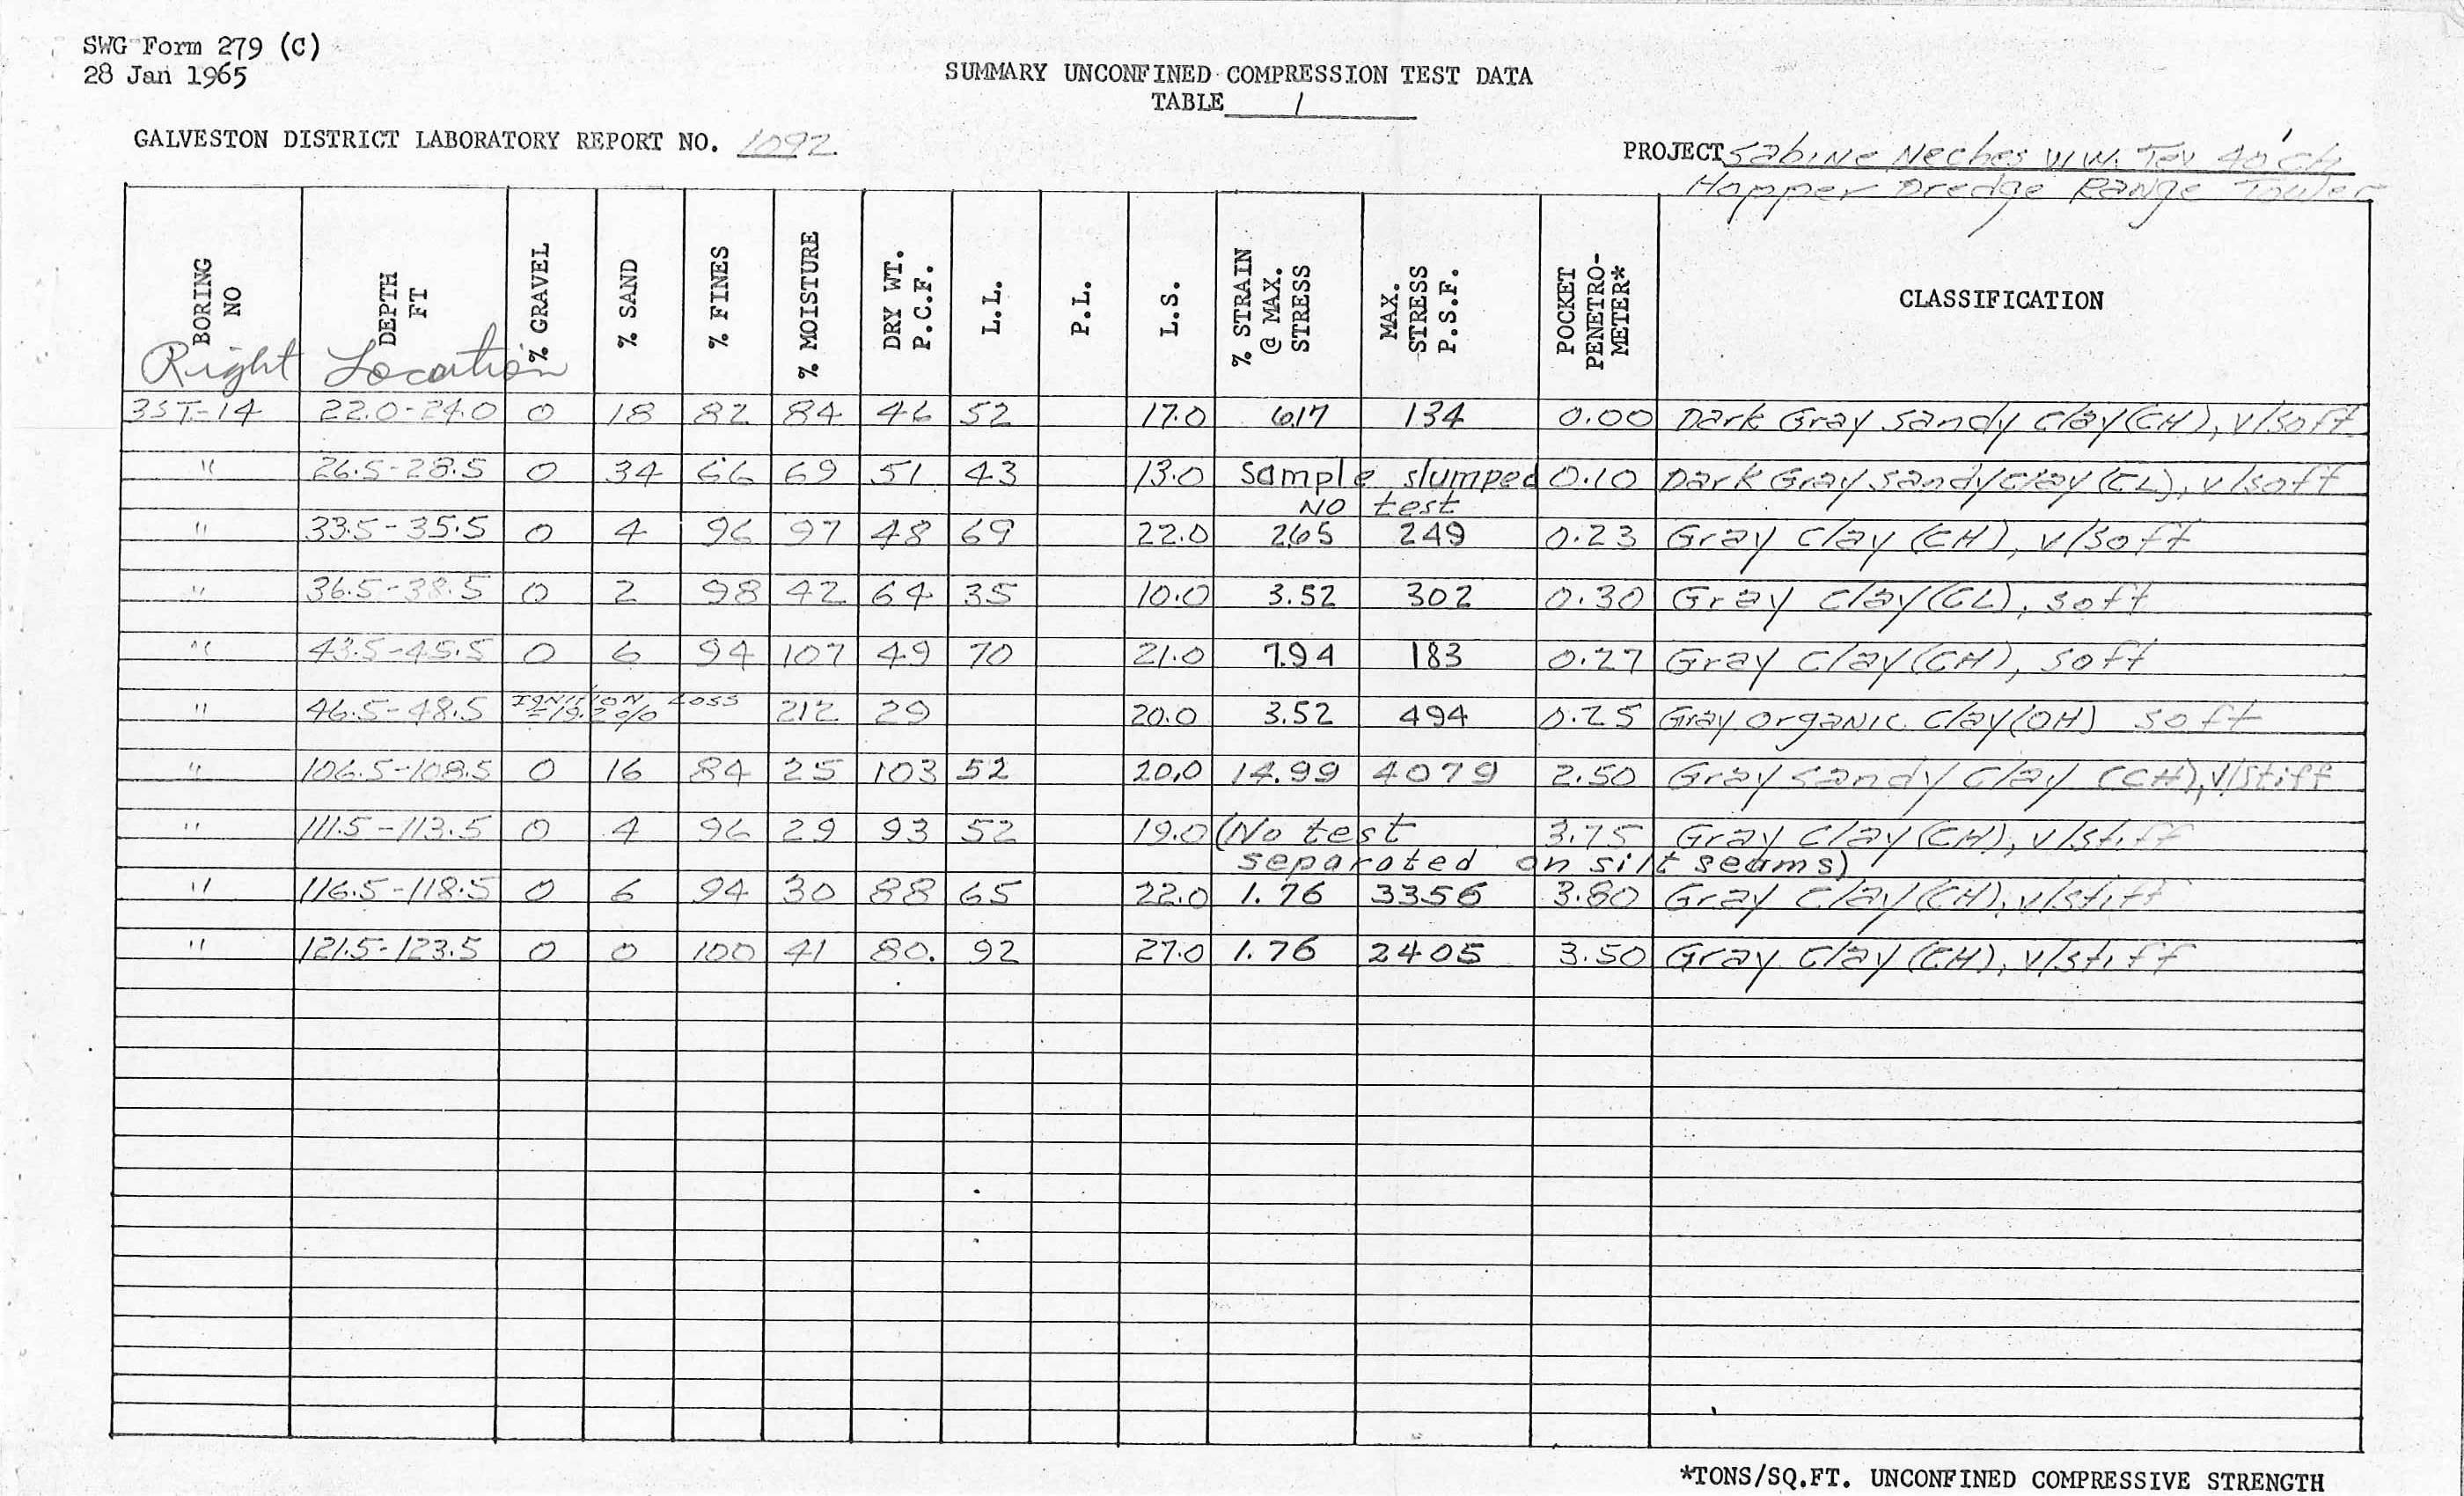 SWG Form 279 (C)
28 Jan 1965
SUMMARY UNCONFINED COMPRESSION TEST DATA
TABLE 1
GALVESTON DISTRICT LABORATORY REPORT NO. 1092
PROJECT Sabine Neches W.W. Tex 40' Ch
Hopper Dredge Range Tower
BORING NO DEPTH FT % GRAVEL % SAND % FINES % MOISTURE DRY WT. P.C.F. L.L. P.L. L.S. % STRAIN @ MAX. STRESS MAX. STRESS P.S.F. POCKET PENETRO-METER* CLASSIFICATION
Right Location
3ST-14 22.0-24.0 0 18 82 84 46 52 17.0 6.17 134 0.00 Dark Gray Sandy Clay (CH), v/soft
" 26.5-28.5 0 34 66 69 51 43 13.0 Sample slumped 0.10 Dark Gray Sandy Clay (CL), v/soft
No test
" 33.5-35.5 0 4 96 97 48 69 22.0 2.65 249 0.23 Gray Clay (CH), v/soft
" 36.5-38.5 0 2 98 42 64 35 10.0 3.52 302 0.30 Gray Clay (CL), soft
" 43.5-45.5 0 6 94 107 49 70 21.0 7.94 183 0.27 Gray Clay (CH), soft
" 46.5-48.5 Ignition Loss 212 29 20.0 3.52 494 0.25 Gray Organic Clay (OH) soft
= 19.2%
" 106.5-108.5 0 16 84 25 103 52 20.0 14.99 4079 2.50 Gray Sandy Clay (CH), v/stiff
" 111.5-113.5 0 4 96 29 93 52 19.0 (No test 3.75 Gray Clay (CH), v/stiff
separated on silt seams)
" 116.5-118.5 0 6 94 30 88 65 22.0 1.76 3356 3.80 Gray Clay (CH), v/stiff
" 121.5-123.5 0 0 100 41 80. 92 27.0 1.76 2405 3.50 Gray Clay (CH), v/stiff
*TONS/SQ.FT. UNCONFINED COMPRESSIVE STRENGTH